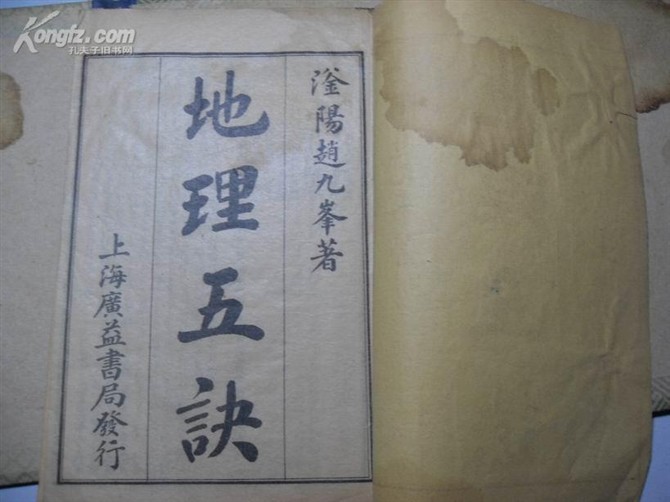 Kongfz.com
孔夫子旧书网
滏陽趙九峯著
地理五訣
上海廣益書局發行